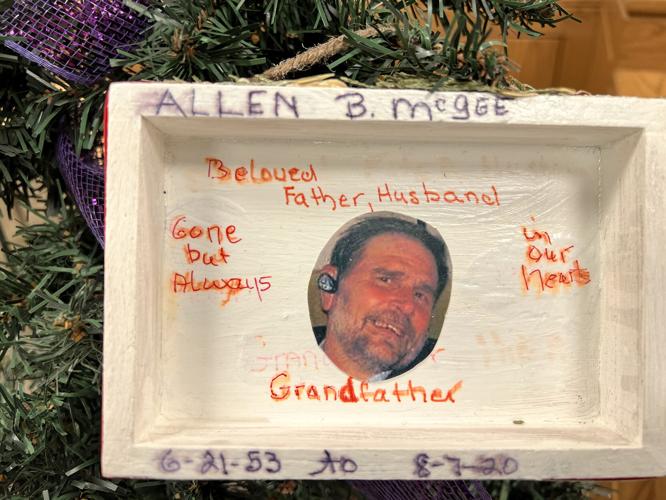 ALLEN B. McGEE
Beloved
Father, Husband
Gone
but
Always
in
our
hearts
Grandfather
6-21-53 to 8-7-20